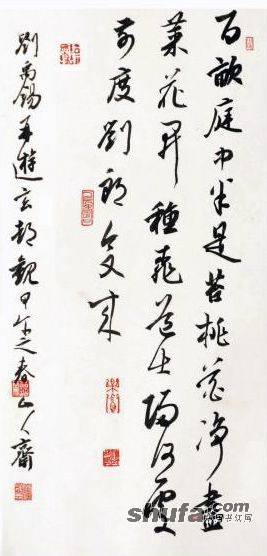 百畝庭中半是苔桃花净盡
菜花開種桃道士歸何處
前度劉郎今又來
劉禹錫再遊玄都觀甲午之春
齋
shufa.com